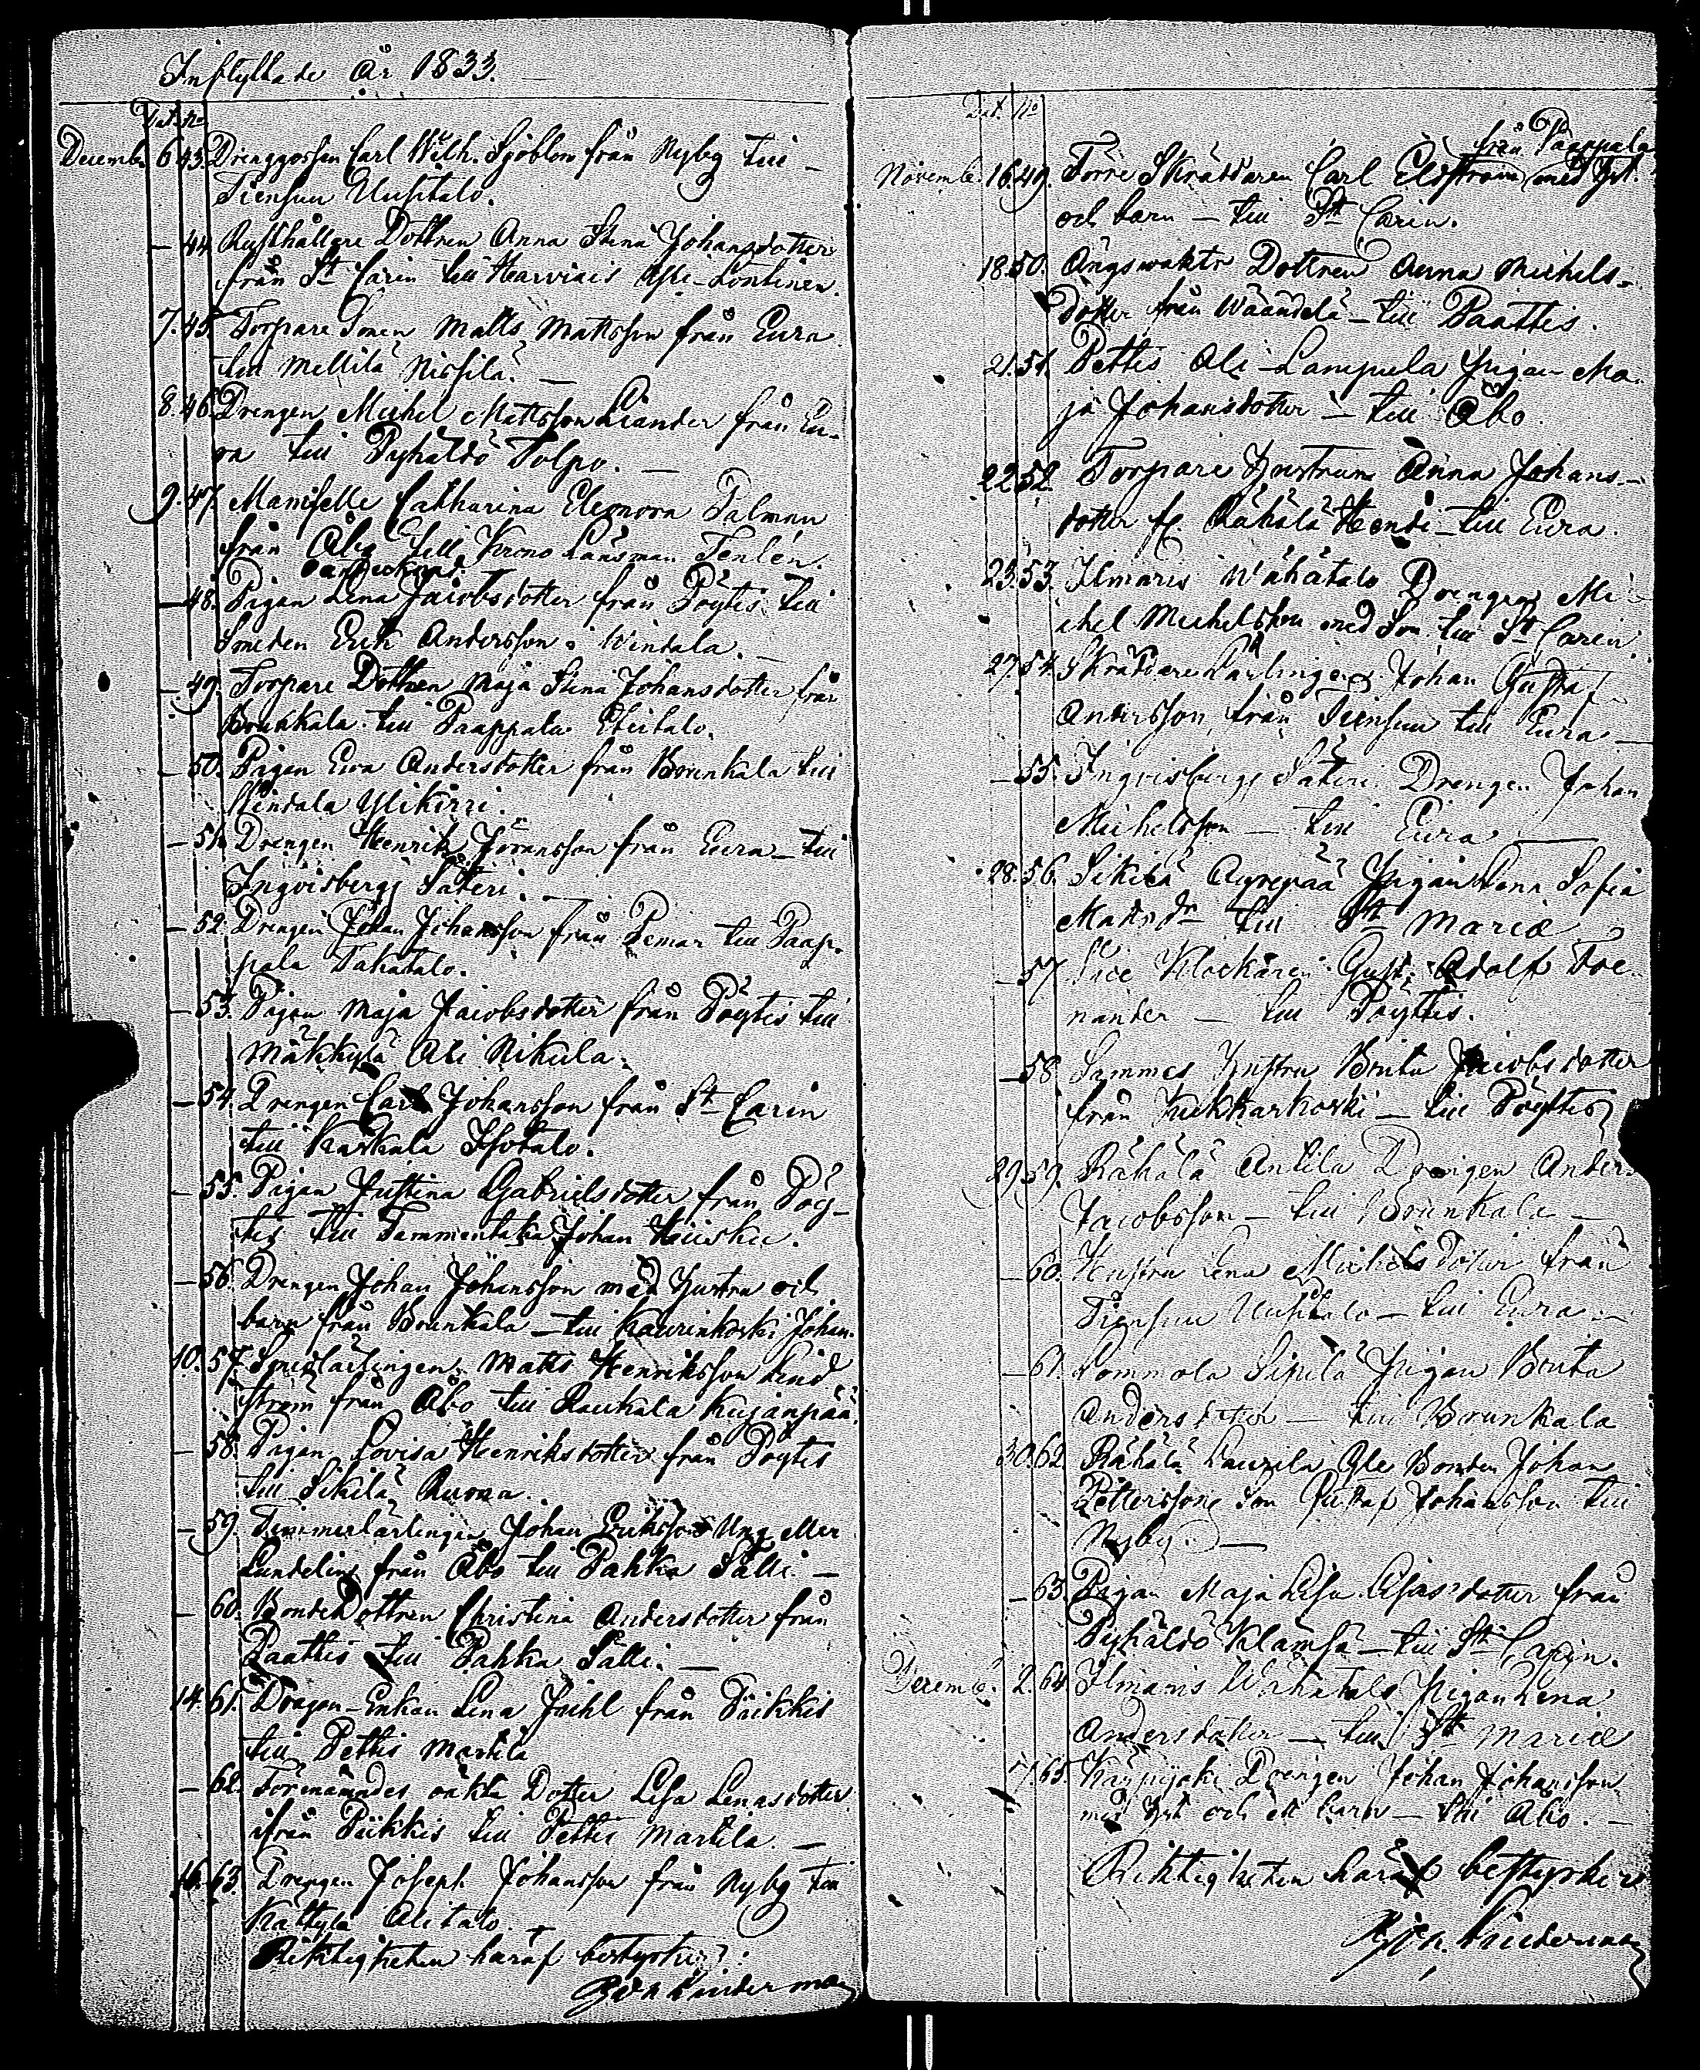 Inflyttade År 1833.
Dat. No
Decemb. 6. 43. Drenggossen Carl Wilh. Sjöblom från Nyby till
Tiensuu Uusitalo.
— 44. Rusthållare Dottren Anna Stina Johansdotter
från St Carin till Harviais Ali-Lontinen.
7. 45. Torpare Sonen Matts Mattsson från Eura
till Mellilä Nissilä. —
8. 46. Drengen Michel Mattsson Liander från Eu-
ra till Pyhäldö Tolpo. —
9. 47. Mamselle Catharina Eleonora Palman
från Åbo till Krono Länsman Tenlén.
48. Pigan Lena Jacobsdotter från Pöytis till
Smeden Erik Andersson i Windala. —
— 49. Torpare Dottren Maja Stina Johansdotter från
Brunkala till Paappala Ylitalo.
— 50. Pigan Ewa Andersdotter från Brunkala till
Windala Ylikirri.
— 51. Drengen Henrik Göransson från Eura — till
Ingvisbergs Säteri. —
— 52. Drengen Johan Johansson från Pemar till Paap-
pala Takatalo.
— 53. Pigan Maja Jacobsdotter från Pöytis till
Mäkkylä Ali Nikula.
— 54. Drengen Carl Johansson från St Carin
till Karkala Isotalo.
— 55. Pigan Justina Gabrielsdotter från Pöy-
tis till Tammentaka Johan Heiisku.
— 56. Drengen Johan Johansson med Hustru och
barn från Brunkala — till Kaurinkoski Johan.
10. 57. Smedlärlingen Matts Henriksson Lind
ström från Åbo till Raukala Kujanpää.
— 58. Pigan Lovisa Henriksdotter från Pöytis
till Sikilä Ruona.
— 59. Timmerlärlingen Johan Eriksson Ung eller
Lundelin från Åbo till Pahka Sälli. —
— 60. BondeDottren Christina Andersdotter från
Paattis till Pahka Sälli. —
14. 61. Dragon-Enkan Lena Juhl från Piikkis
till Pettis Martila
— 62. Förenämndes oäkta Dotter Lisa Lenasdotter
ifrån Piikkis till Pettis Martila —
16. 63. Drengen Joseph Johansson från Nyby till
Kattyla Alitalo.
Riktigheten häraf bestyrker:
Linderman
Dat. No
från Paappala
Novemb. 16. 49. Förre Skräddaren Carl Elfström med Hst.
och barn — till St Carin.
18. 50. Ängswakts Dottren Anna Michels-
dotter från Wäändelä — till Paattis.
21. 51. Pettis Ali-Lampula Pigan Ma-
ja Johansdotter — till Åbo
22. 52. Torpare Hustrun Anna Johans-
dotter fr. Rähälä Hendi — till Eura.
23. 53. Ilmaris Wähätalo Drengen Mi-
chel Michelsson med Son till St Carin.
27. 54. Skräddare Lärlingen Johan Gustaf
Andersson från Tiensuu till Eura —
— 55. Ingvisbergs Säteri Drengen Johan
Michelsson — till Eura —
28. 56. Sikilä Äyrepää Pigan Lena Sofia
Matsdr till St Mariæ
— 57. Vice Klockaren Gust. Adolf
nander — till Pöyttis.
— 58. Sammes Hustru Brita Jacobsdotter
från Kukkarkoski — till Pöyttis
29. 59. Rähälä Antila Drengen Anders
Jacobsson — till Brunkala —
— 60. Hustru Lena Michelsdotter från
Tiensuu Uusitalo — till Eura. —
— 61. Lommola Sipilä Pigan Brita
Andersdotter — till Brunkala
30. 62. Rähälä Laurila Gle Bonden Johan
Pettersson Son Gustaf Johansson till
Nyby. —
— 63. Pigan Maja Lisa Lisasdotter från
Pyhäldö Klämsä — till St Carin.
Decemb. 2. 64. Ilmaris Wähätalo Pigan Lena
Andersdotter — till St Mariæ
7. 65. Karpijoki Drengen Johan Johansson
med Hst och ett barn — till Åbo. —
Riktigheten häraf bestyrker
Linderman